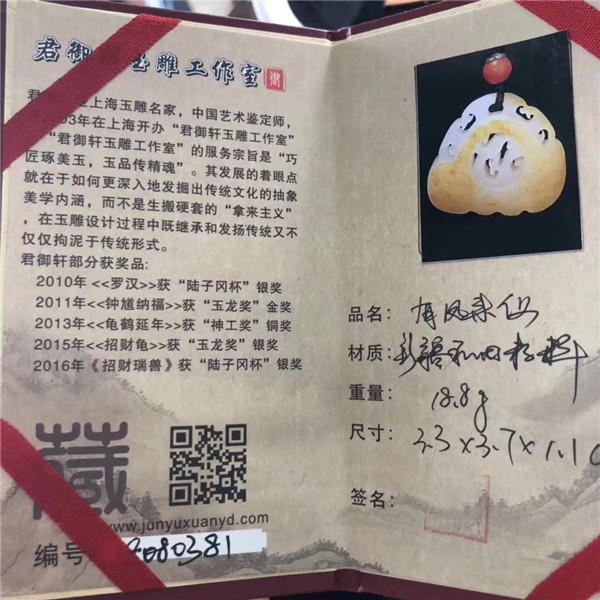 君御 玉雕工作室
君 是上海玉雕名家，中国艺术鉴定师，
93年在上海开办“君御轩玉雕工作室”
“君御轩玉雕工作室”的服务宗旨是“巧
匠琢美玉，玉品传精魂”。其发展的着眼点
就在于如何更深入地发掘出传统文化的抽象
美学内涵，而不是生搬硬套的“拿来主义”
，在玉雕设计过程中既继承和发扬传统又不
仅仅拘泥于传统形式。
君御轩部分获奖品：
2010年 <<罗汉>>获“陆子冈杯”银奖
2011年 <<钟馗纳福>>获“玉龙奖”金奖
2013年 <<龟鹤延年>>获“神工奖”铜奖
2015年 <<招财龟>>获“玉龙奖”银奖
2016年《招财瑞兽》获“陆子冈杯”银奖
藏
www.junyuxuanyd.com
编号 080381
品名：有凤来仪
材质：新疆和田籽料
重量：18.8g
尺寸：3.3×3.7×1.1
签名：